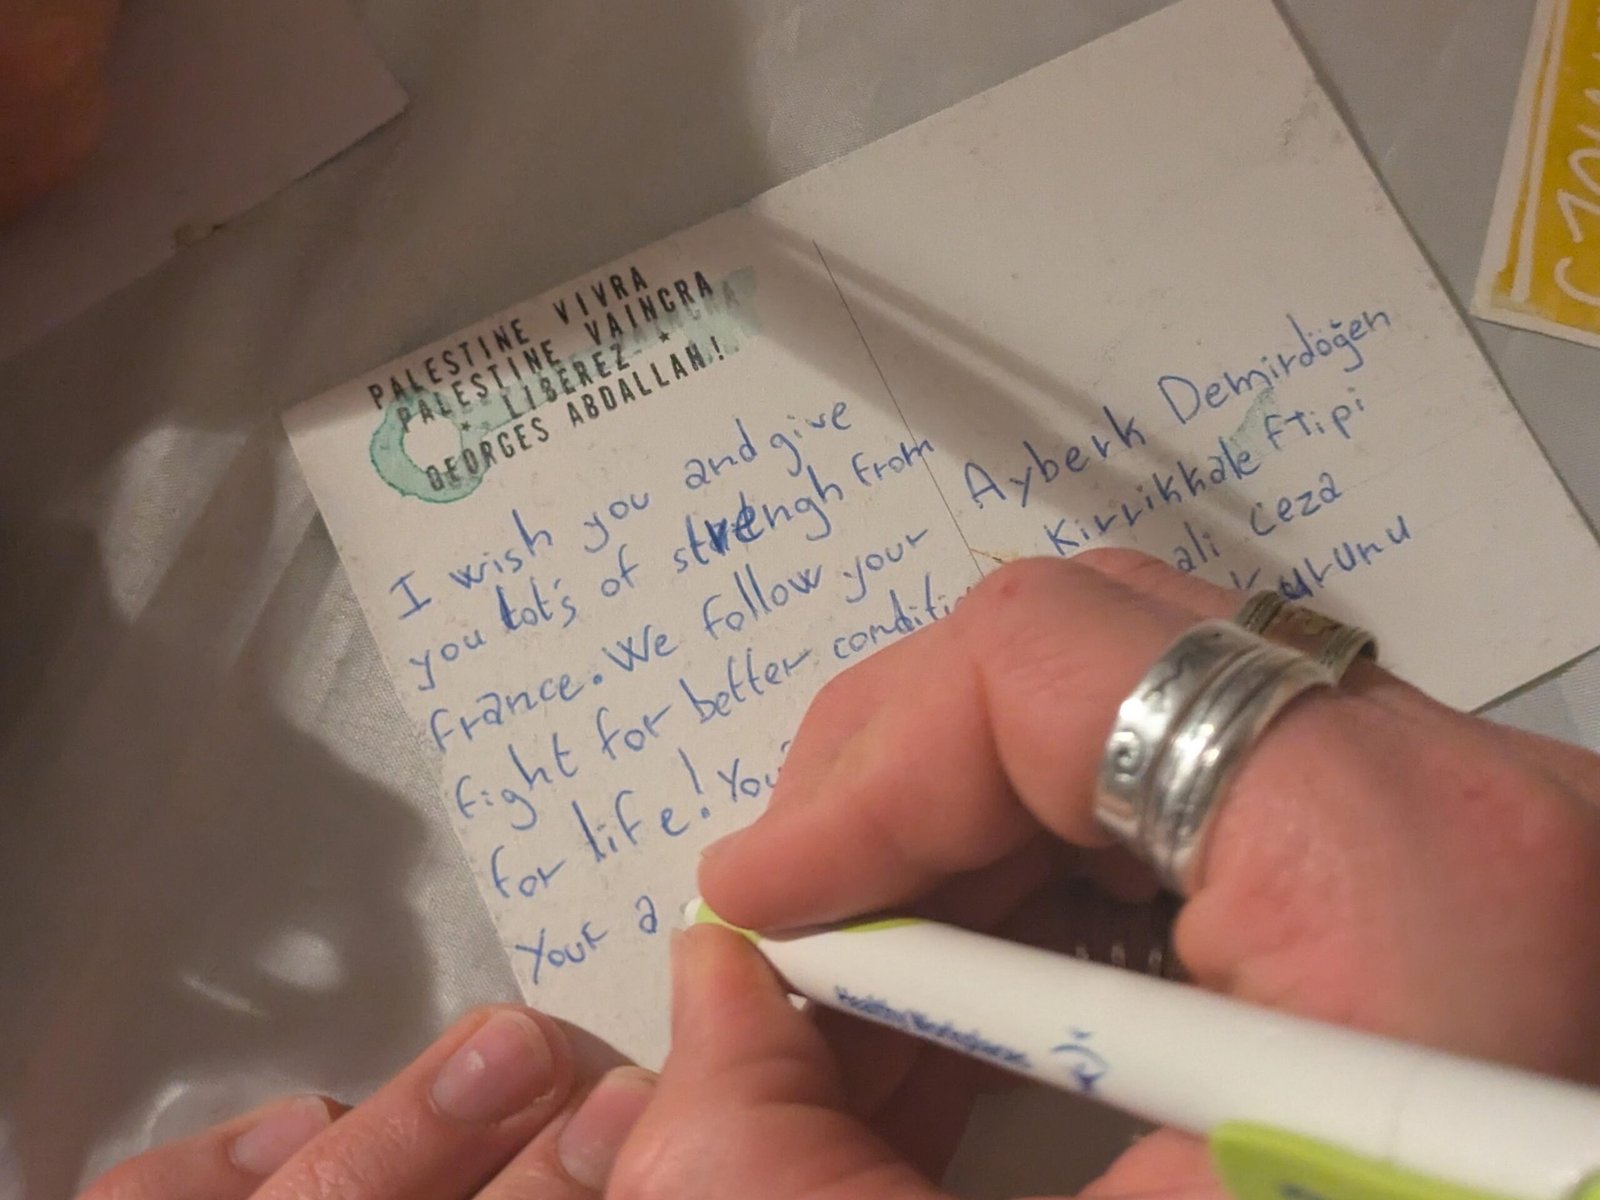 PALESTINE VIVRA
PALESTINE VAINCRA
* LIBEREZ *
GEORGES ABDALLAH!
I wish you and give
you lot's of strengh from
france. We follow your
fight for better conditi
for life! You
Your a
Ayberk Demirdöğen
Kirrikkale FTipi
ali Ceza
Kurunu